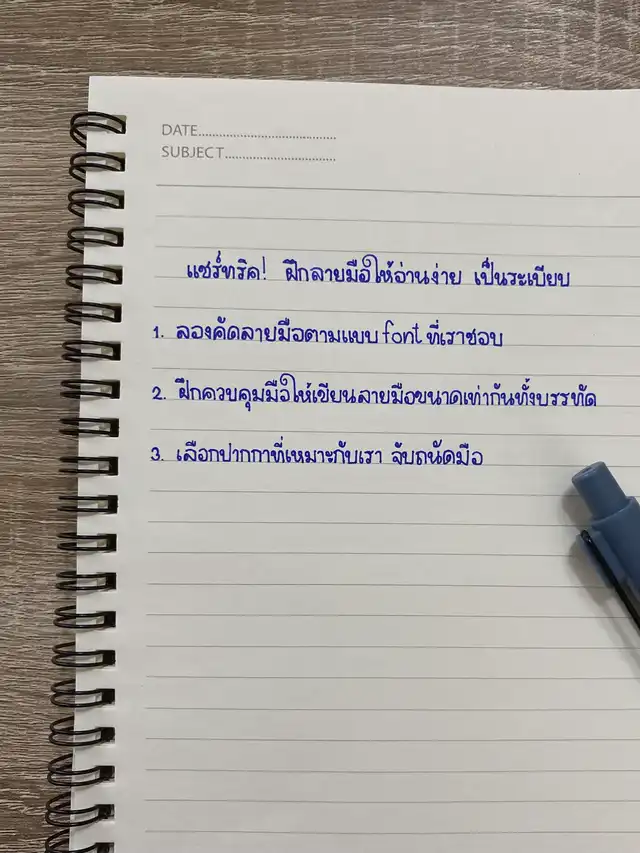 DATE
SUBJECT
แชร์ทริค! ฝึกลายมือให้อ่านง่าย เป็นระเบียบ
1. ลองคัดลายมือตามแบบ font ที่เราชอบ
2. ฝึกควบคุมมือให้เขียนลายมือขนาดเท่ากันทั้งบรรทัด
3. เลือกปากกาที่เหมาะกับเรา จับถนัดมือ